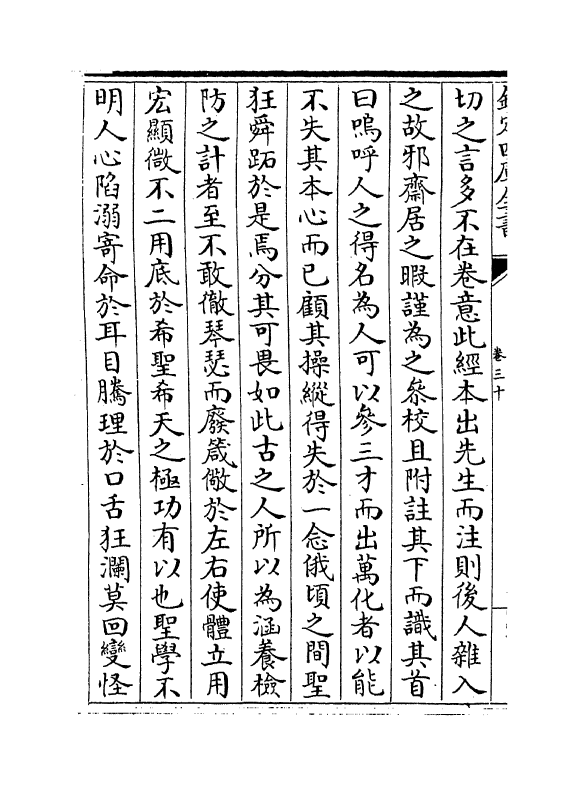 欽定四庫全書
卷三十
切之言多不在卷意此經本出先生而注則後人雜入
之故邪齋居之暇謹為之叅校且附註其下而識其首
曰嗚呼人之得名為人可以參三才而出萬化者以能
不失其本心而已顧其操縱得失於一念俄頃之間聖
狂舜跖於是焉分其可畏如此古之人所以為涵養檢
防之計者至不敢徹琴瑟而廢箴儆於左右使體立用
宏顯微不二用底於希聖希天之極功有以也聖學不
明人心陷溺寄命於耳目騰理於口舌狂瀾莫回變怪